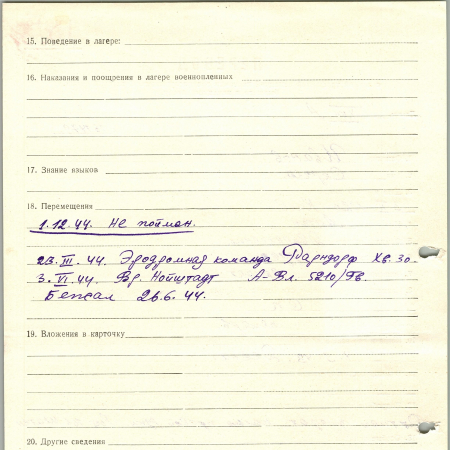 15. Поведение в лагере:
16. Наказания и поощрения в лагере военнопленных
17. Знание языков
18. Перемещения
1.12.44. Не пойман.
23.III.44. Аэродромная команда Парндорф Хв. 30.
3.VI.44. Вр. Нойштадт А-Вл. 5210/Гв.
Бежал 26.6.44.
19. Вложения в карточку
20. Другие сведения